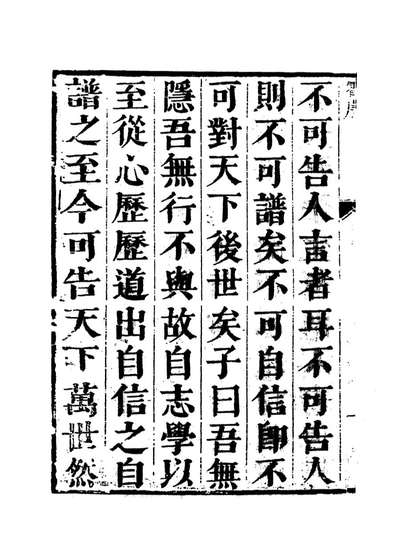 不可告人言者耳不可告人
則不可譜矣不可自信卽不
可對天下後世矣子曰吾無
隱吾無行不與故自志學以
至從心歷歷道出自信之自
譜之至今可告天下萬世然